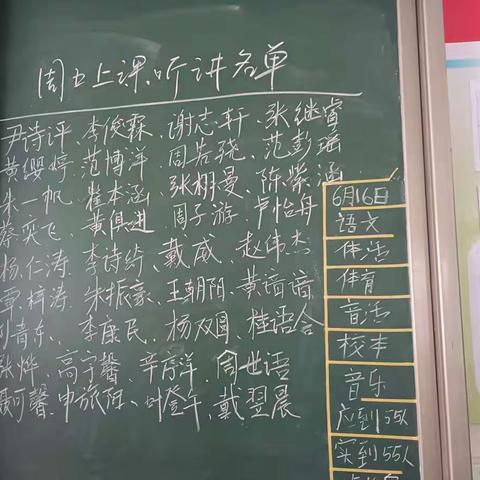 周五上课听讲名单
尹诗评、李俊霖、谢志轩、张继富
黄缨婷、范博洋、周若骁、范彭瑶
朱一帆、崔本涵、张栩曼、陈紫涵
蔡奕飞、黄俱进、周子游、卢怡舟
杨仁涛、李诗绮、戴威、赵伟杰
覃梓涛、朱振豪、王朝阳、黄谙谙
青东、李康民、杨双圆、桂语含
张烨、高宇馨、辛序洋、周世语
馨、申旅阳、叶登午、戴翌晨
6月16日
语文
体活
体育
音活
校本
音乐
应到55人
实到55人